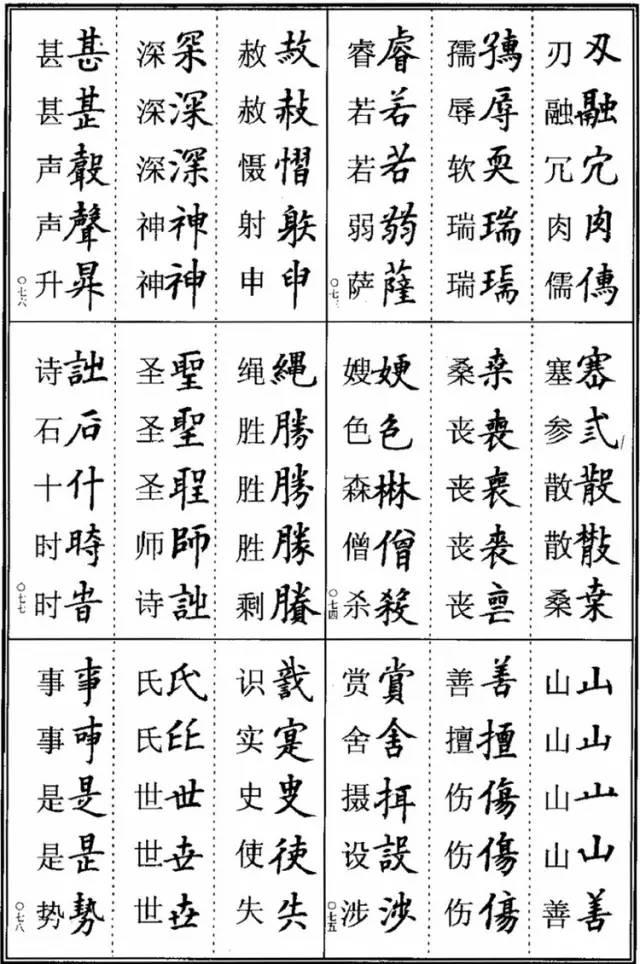 刄融宂肉
刃融冗肉儒
辱耎瑞
孺辱软瑞瑞
睿若若弱薩
睿若若弱萨
〇七
赦慴申
赦赦慑射申
罙深深神神
深深深神神
甚甚聲
甚甚声声升
〇七六
弎散
塞参散散桑
桒喪
桑丧丧丧丧
色僧殺
嫂色森僧杀
〇七四
繩勝勝勝賸
绳胜胜胜剩
聖聖師
圣圣圣师诗
石什時旹
诗石十时时
〇七七
山山山山善
山山山山善
善擅傷傷傷
善擅伤伤伤
賞舍設涉
赏舍摄设涉
〇七五
寔使失
识实史使失
氏世
氏氏世世世
事是昰勢
事事是是势
〇七八